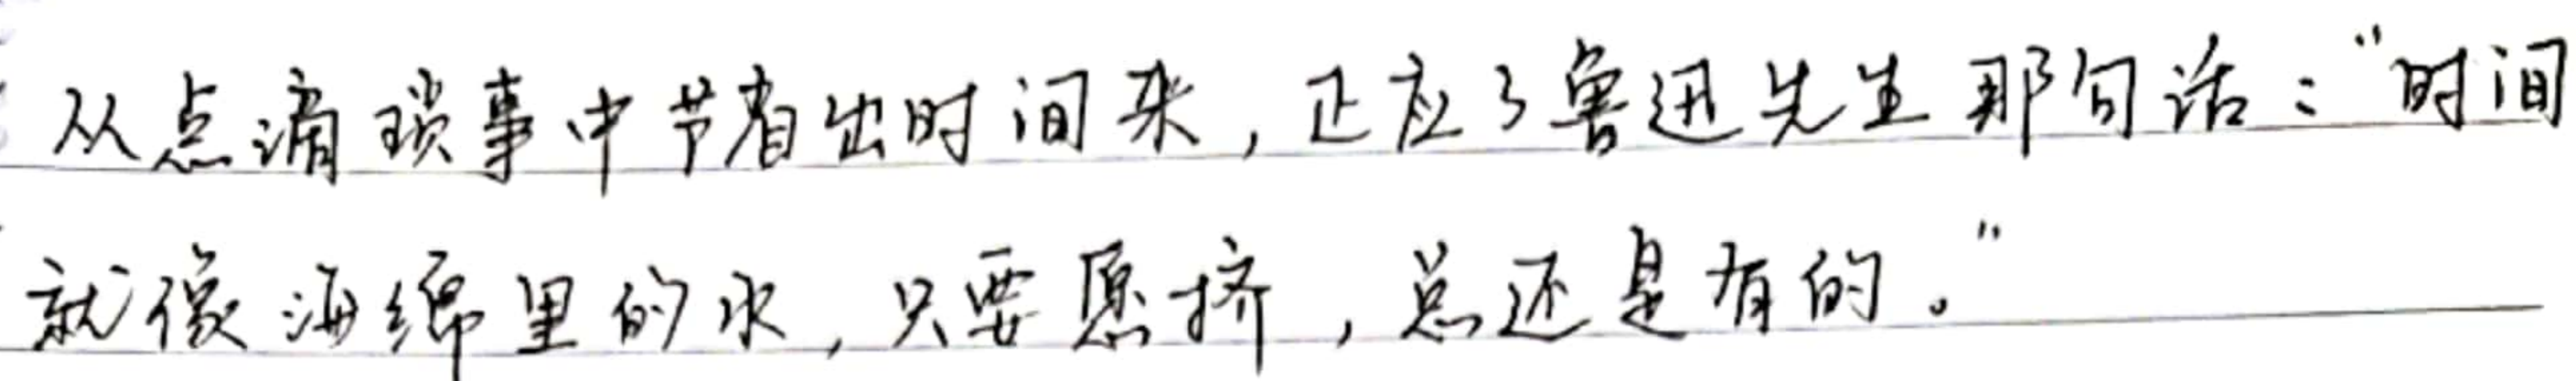 从点滴琐事中节省出时间来，正应了鲁迅先生那句话：“时间
就像海绵里的水，只要愿挤，总还是有的。”